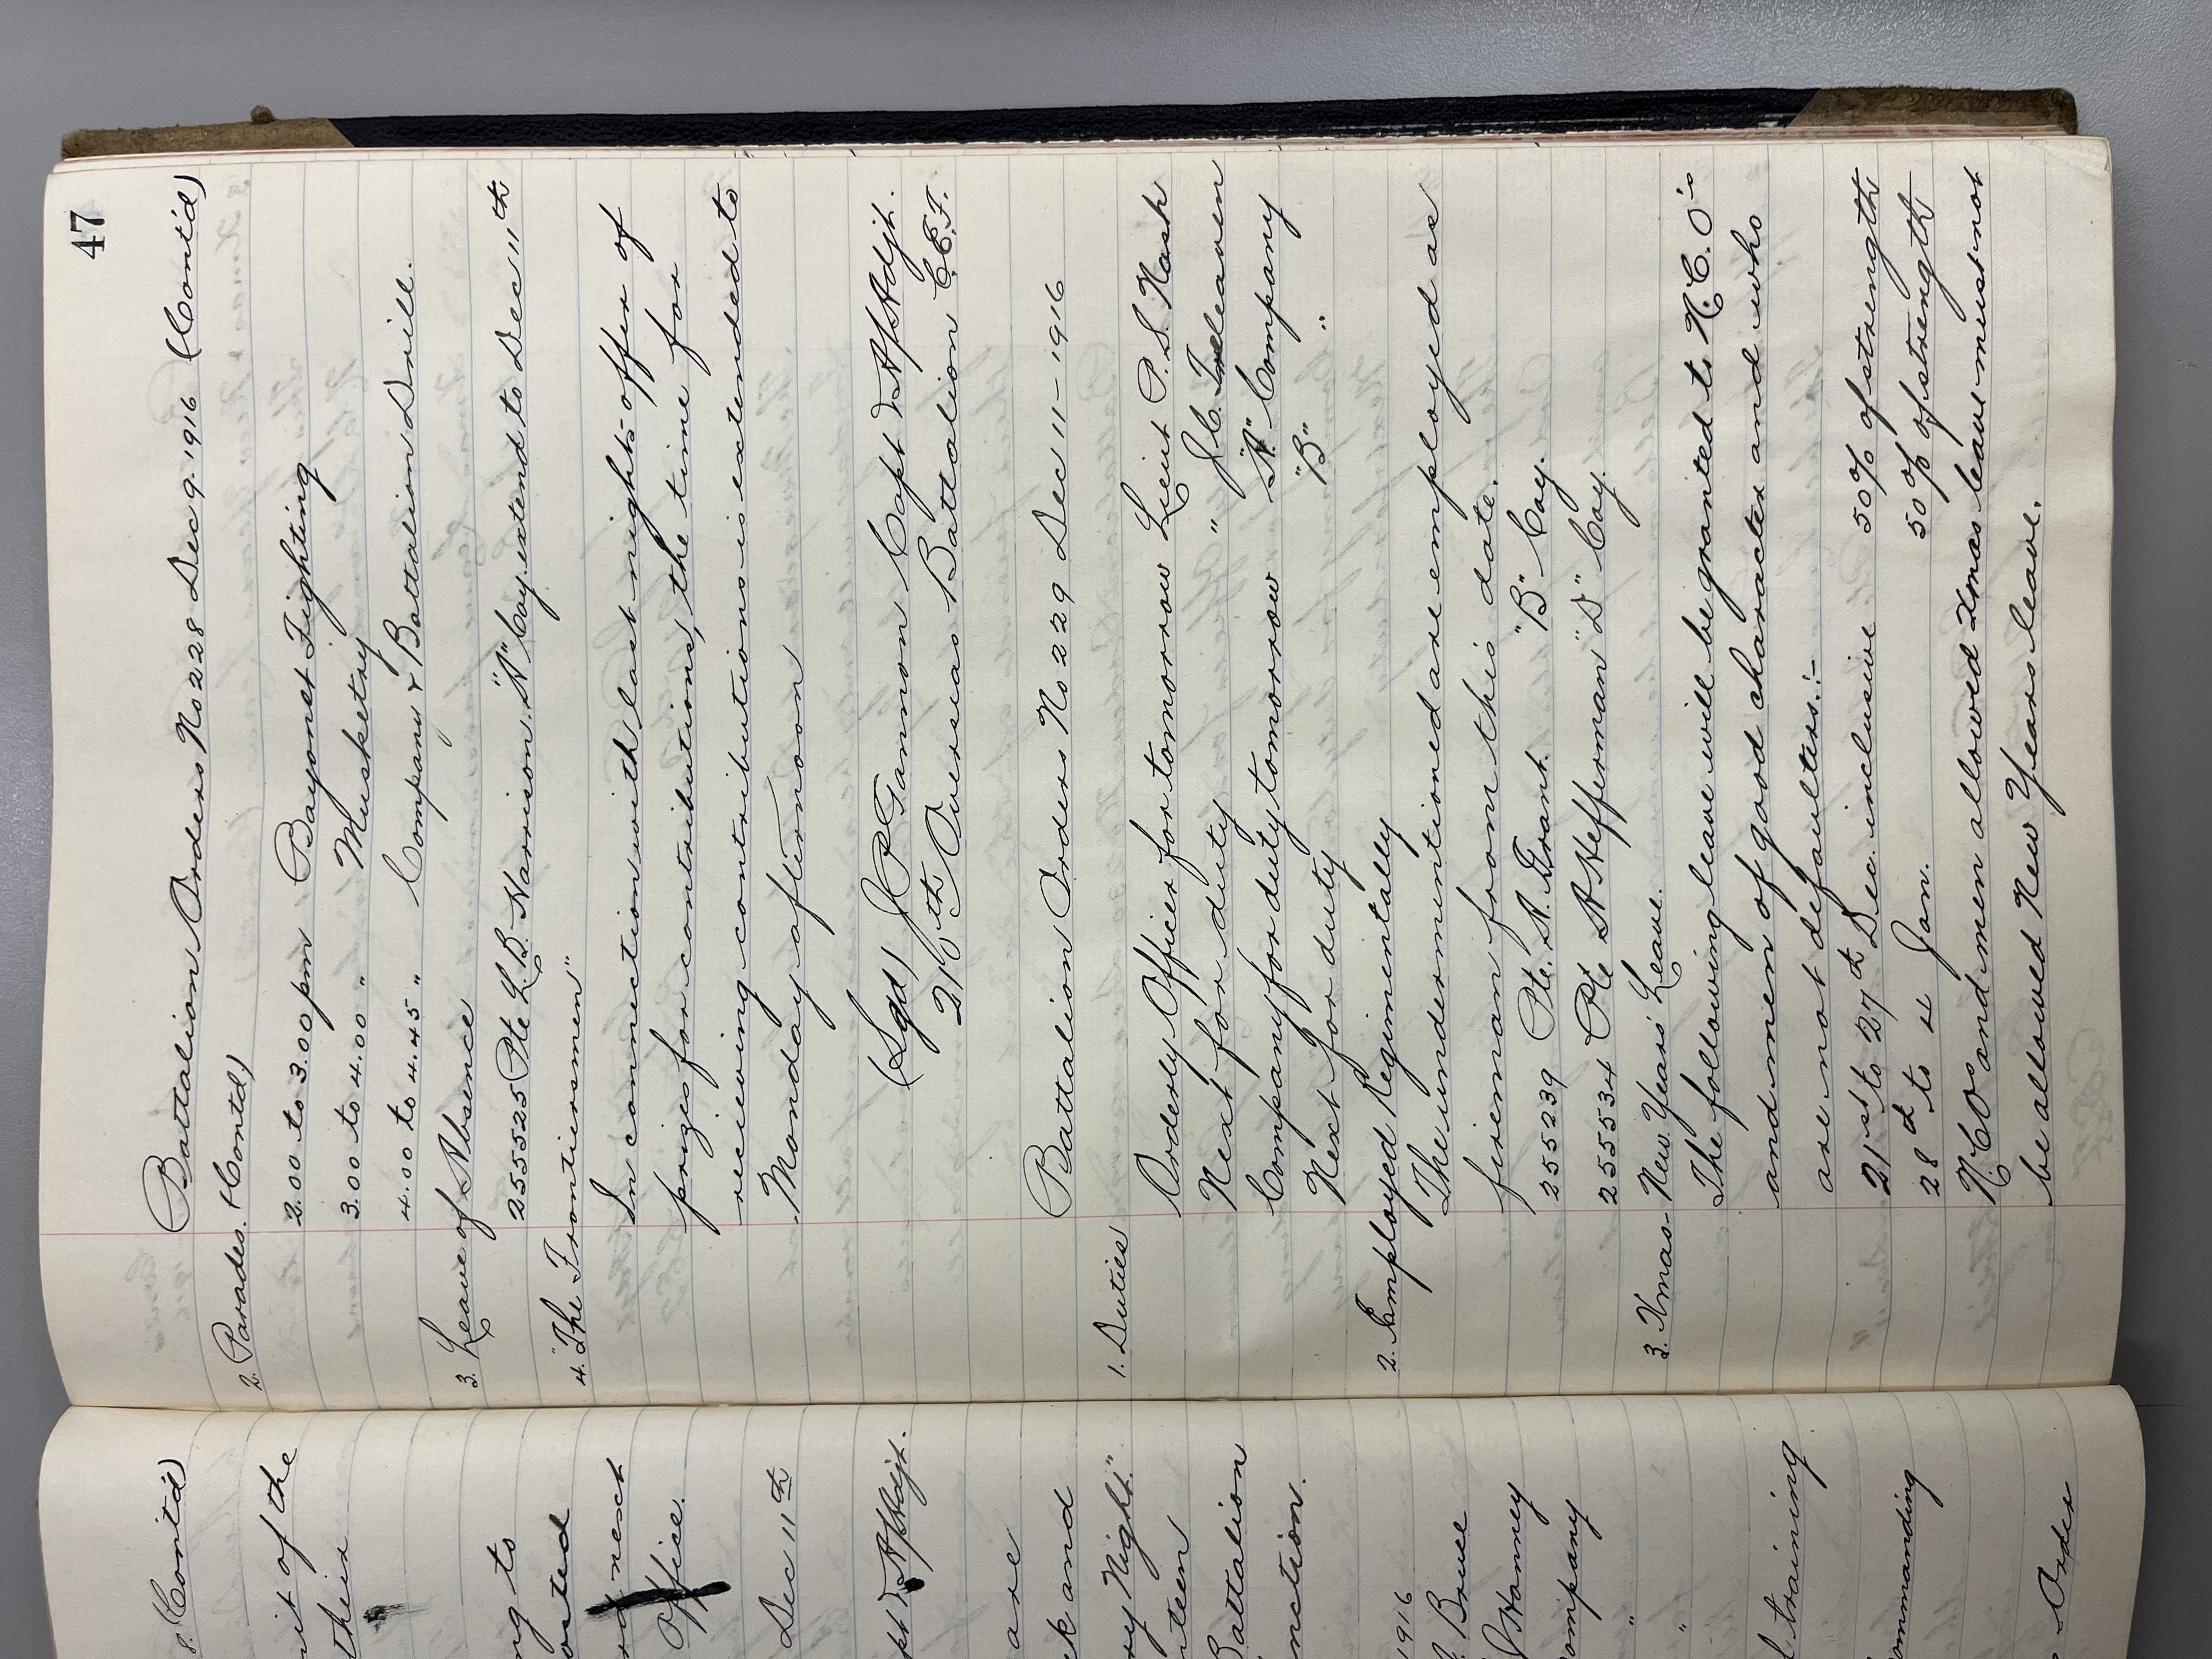 47
Battalion Orders No 228 Dec 9. 1916 (Cont'd)
2. Parades. (Contd)
2.00 to 3.00 pm Bayonet Fighting
3.00 to 4.00 " Musketry
4.00 to 4.45 " Company & Battalion Drill.
3. Leave of Absence
255525 Pte L.B. Harrison, "A" Coy. extend to Dec 11th
4. "The Frontiersmen"
In connection with last nights offer of
prizes for contributions, the time for
receiving contributions is extended to
Monday afternoon
(Sgd) J P Gannon Capt & A/Adjt.
210th Overseas Battalion C.E.F.
Battalion Orders No 229 Dec 11 - 1916
1. Duties
Orderly Officer for tomorrow Lieut P. S. Nash
Next for duty " J C. Treleaven
Company for duty tomorrow "A" Company
Next for duty "B" "
2. Employed Regimentally
The undermentioned are employed as
fireman from this date.
255239 Pte. A. Grant. "B" Coy.
255534 Pte A Heffernan "D" Coy.
3. Xmas - New Years' Leave.
The following leave will be granted to N.C.O's
and men of good character and who
are not defaulters:-
21st to 27th Dec. inclusive 50% of strength
28th to 4 Jan. 50% of strength
N.C.Os and men allowed Xmas leave must not
be allowed New Years leave.
8. Cont'd)
of the
their
to
next
Office.
Dec 11th
A/Adjt.
are
and
Night."
Battalion
1916
Bruce
J Hanney
"
"
training
Order